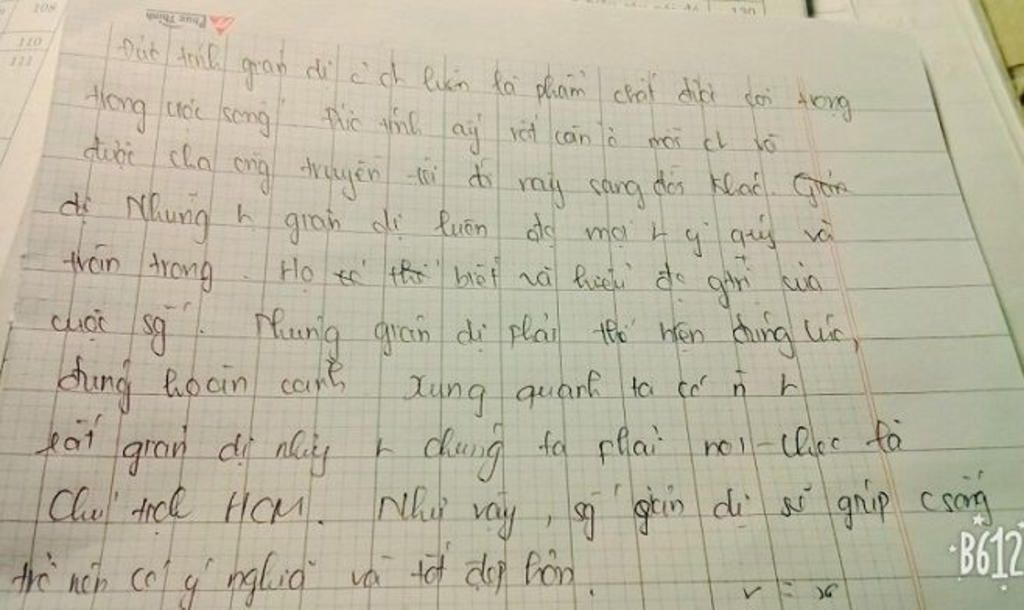 108
110
111
130
Phúc Thịnh
Đức tính giản dị ở ch luôn là phẩm chất đc coi trọng
trong cuộc sống Đức tính ấy rất cần ở mỗi ch
được cha ông truyền từ đời này sang đời khác. Giản
dị Những h giản dị luôn đc mọi h y quý và
trân trọng. Họ biết và hiểu đc giá trị của
cuộc sg. Nhưng giản dị phải thể hiện đúng lúc,
đúng hoàn cảnh Xung quanh ta có n h
rất giản dị nhg h chúng ta phải nói
Chủ tịch HCM. Như vậy, sg giản dị sẽ giúp c sống
trở nên có ý nghĩa và tốt đẹp hơn.
B612